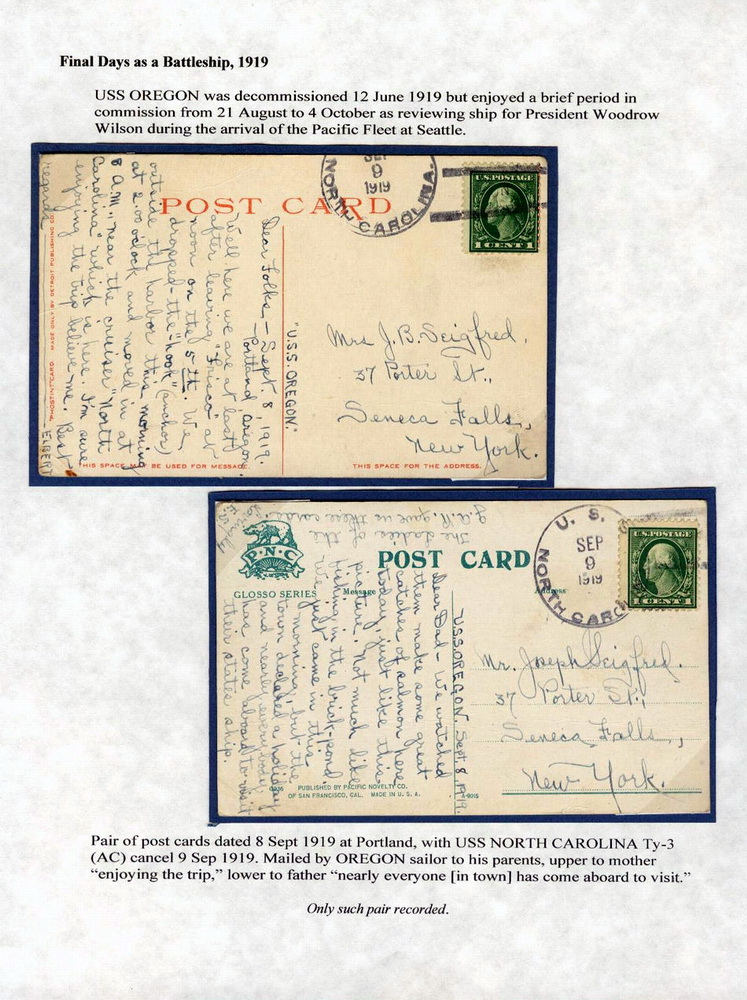 Final Days as a Battleship, 1919
USS OREGON was decommissioned 12 June 1919 but enjoyed a brief period in
commission from 21 August to 4 October as reviewing ship for President Woodrow
Wilson during the arrival of the Pacific Fleet at Seattle.
POST CARD
SEP
9
1919
NORTH CAROLINA.
U.S. POSTAGE
1 CENT 1
Dear Folks— Sept. 8, 1919.
Portland Oregon.
Well here we are at last
after leaving "Frisco" at
noon on the 5th. We
dropped-the-"hook" (anchor)
outside the harbor this morning
at 2:00 o'clock and moved in at
8 A.M., near the cruiser "North
Carolina" which is here. I'm sure
enjoying the trip believe me. Best
regards
ELBERT
"U.S.S. OREGON."
Mrs J.B. Seigfred,
37 Porter St.,
Seneca Falls,
New York.
"PHOSTINT" CARD. MADE ONLY BY DETROIT PUBLISHING CO.
THIS SPACE MAY BE USED FOR MESSAGE.
THIS SPACE FOR THE ADDRESS.
The ladies of the
gave us these cards.
P.N.C.
GLOSSO SERIES
POST CARD
Message
Address
U. S.
SEP
9
1919
NORTH CARO
U.S. POSTAGE
1 CENT 1
U.S.S. OREGON. Sept. 8, 1919.
Dear Dad— We watched
them make some great
catches of salmon here
today, just like this
picture. Not much like
fishing in the brick-pond.
We just came in this
morning, but the
town declared a holiday
and nearly everybody
has come aboard to visit
their state's ship.
Mr. Joseph Seigfred.
37 Porter St.,
Seneca Falls,
New York.
PUBLISHED BY PACIFIC NOVELTY CO.
OF SAN FRANCISCO, CAL. MADE IN U. S. A.
Pair of post cards dated 8 Sept 1919 at Portland, with USS NORTH CAROLINA Ty-3
(AC) cancel 9 Sep 1919. Mailed by OREGON sailor to his parents, upper to mother
“enjoying the trip,” lower to father “nearly everyone [in town] has come aboard to visit.”
Only such pair recorded.